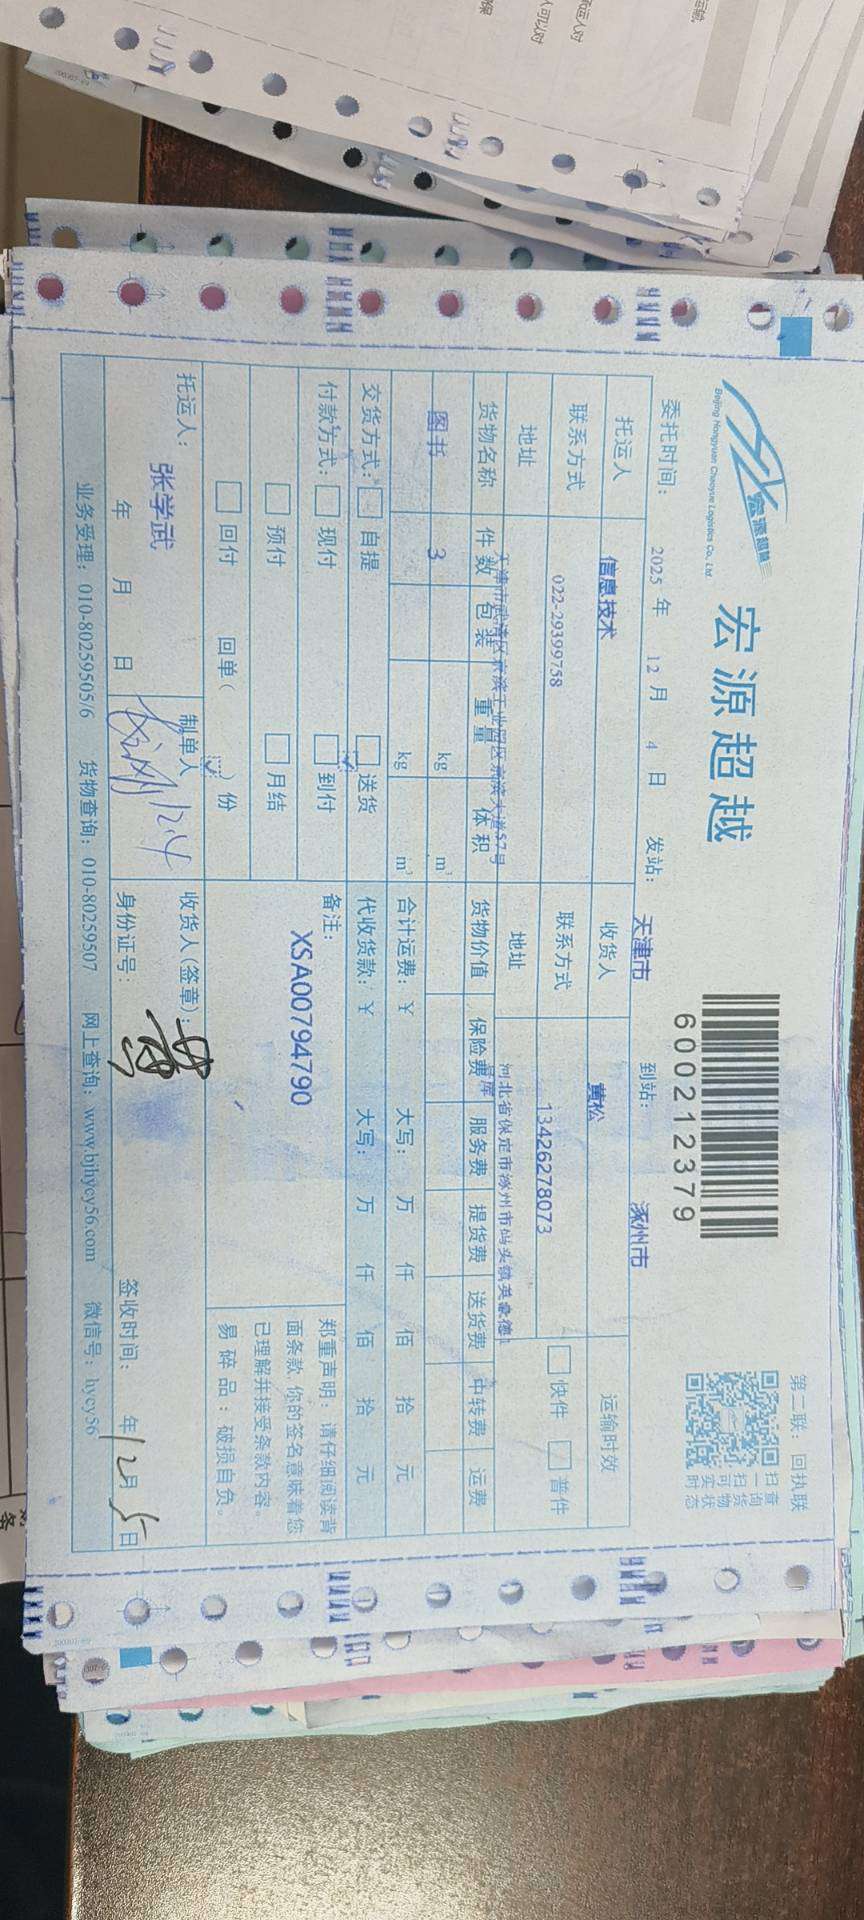 宏源超越
Beijing Hongyuan Chaoyue Logistics Co., Ltd
宏源超越
600212379
第二联：回执联
扫一扫可实时
查询货物状态
委托时间： 2025 年 12 月 4 日 发站： 天津市 到站： 涿州市
托运人 信息技术 收货人 黄松 运输时效
联系方式 022-29399758 联系方式 13426278073 快件 普件
地址 天津市武清区京滨工业园区京滨大道57号 地址 河北省保定市涿州市码头镇英豪德1号库
货物名称 件数 包装 重量 体积 货物价值 保险费 服务费 提货费 送货费 中转费 运费
图书 3 kg m³
kg m³ 合计运费：￥ 大写： 万 仟 佰 拾 元
交货方式： 自提 送货 代收货款：￥ 大写： 万 仟 佰 拾 元
付款方式： 现付 到付 备注：
预付 月结 XSA00794790
回付 回单( )份
郑重声明：请仔细阅读背
面条款，你的签名意味着您
已理解并接受条款内容。
易碎品：破损自负。
托运人： 张学武 制单人 12.4 收货人(签章)：
年 月 日 身份证号： 签收时间： 年 12月 5日
业务受理：010-80259505/6 货物查询：010-80259507 网上查询：www.bjhycy56.com 微信号：hycy56